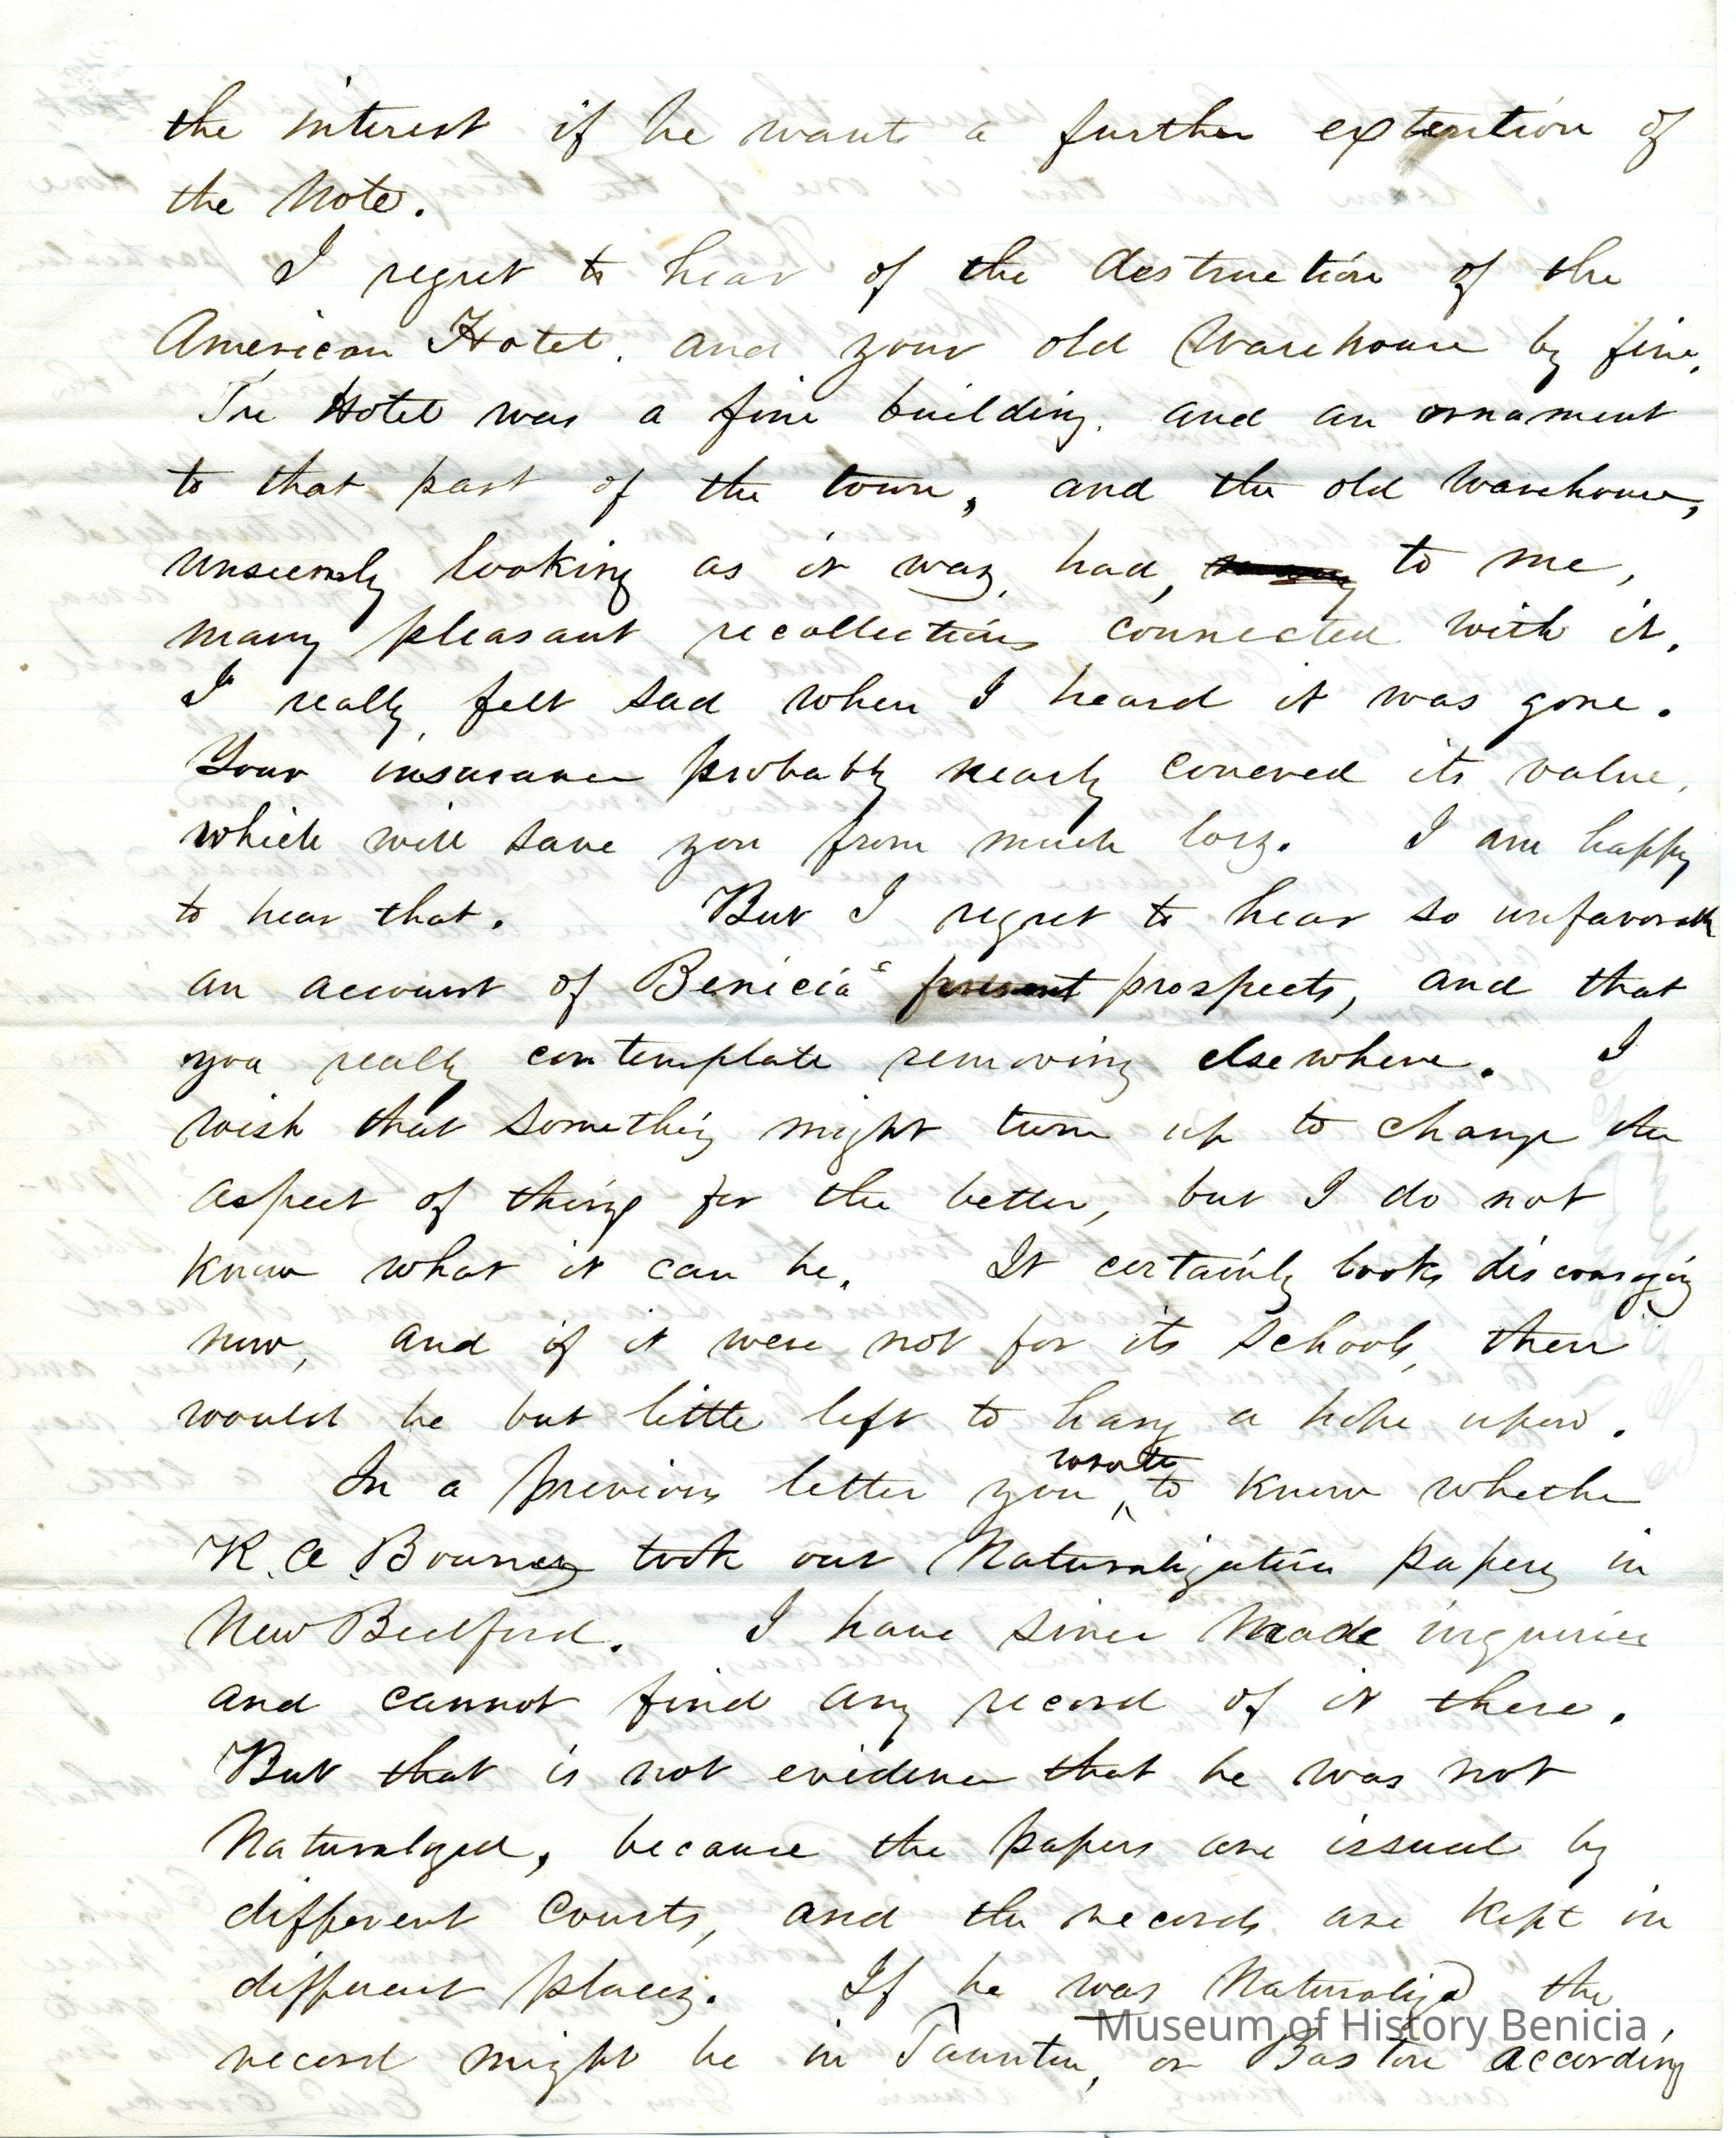 the interest if he wants a further extention of
the Note.
I regret to hear of the destruction of the
American Hotel. and your old Warehouse by fire.
The Hotel was a fine building. and an ornament
to that part of the town, and the old Warehouse,
unseemly looking as it was, had, to me,
many pleasant recollections connected with it.
I really felt sad when I heard it was gone.
Your insurance probably nearly covered its value,
which will save you from much loss. I am happy
to hear that. But I regret to hear so unfavorable
an account of Benicia's present prospects, and that
you really contemplate removing elsewhere. I
wish that something might turn up to change the
aspect of things for the better, but I do not
know what it can be. It certainly looks discouraging
now, and if it were not for its schools, there
would be but little left to hang a hope upon.
wrote
In a previous letter you ^ to know whether
K. A. Bourney took out Naturalization papers in
New Bedford. I have since made inquiries
and cannot find any record of it there.
But that is not evidence that he was not
Naturalzed, because the papers are issued by
different Courts, and the records are kept in
different places. If he was Naturalized the
record might be in Taunton, or Boston according
Museum of History Benicia